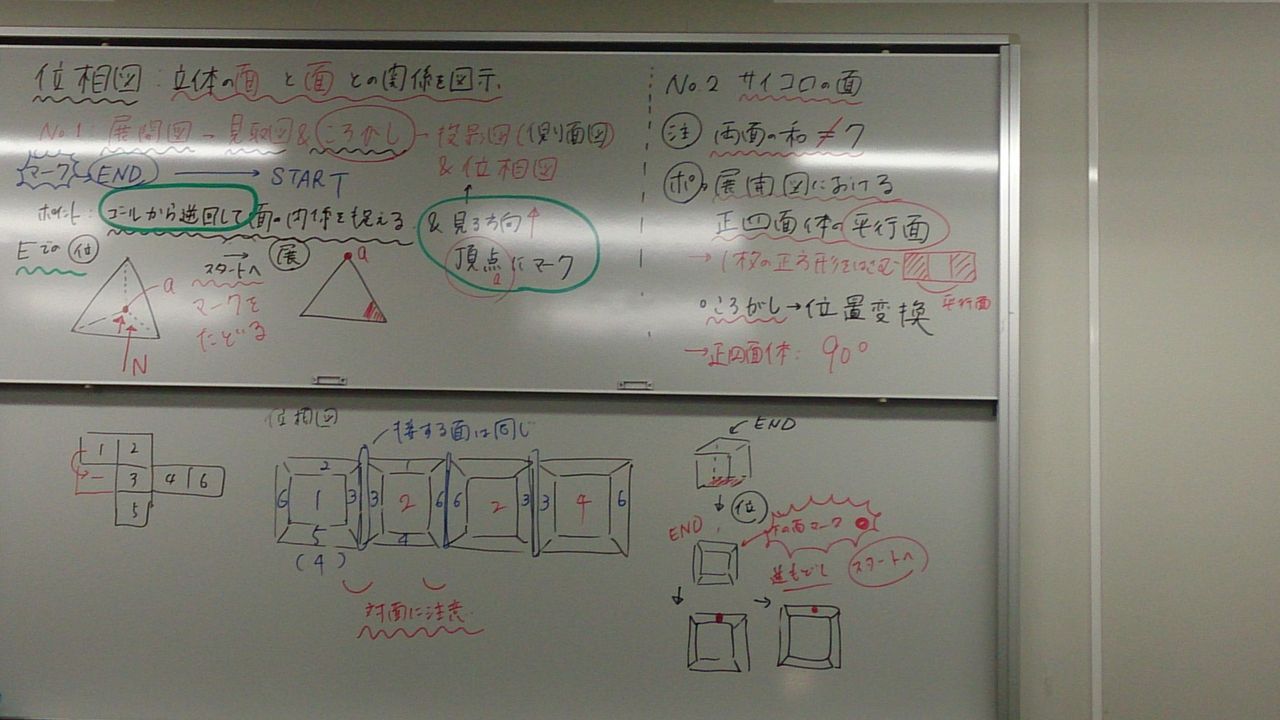 位相図:立体の面と面との関係を図示.
No.1: 展開図 - 見取図&ころがし - 投影図(側面図)
&位相図
マーク END → START
ポイント:ゴールから逆回して面の関係を捉える
&見る方向↑
頂点にマーク
a
Eての 位
スタートへ
マークを
たどる
a
N
展
a
No.2 サイコロの面
注 両面の和≠7
ポ。展開図における
正四面体の平行面
→1枚の正方形をはさむ
平行面
○ころがし→位置変換
→正四面体: 90°
1 2
- 3 4 6
5
位相図
接する面は同じ
2 1
6 1 3 3 2 6 6 2 3 3 4 6
5 4
(4)
対面に注意.
END
位
END
下の面マーク
逆もどし スタートへ